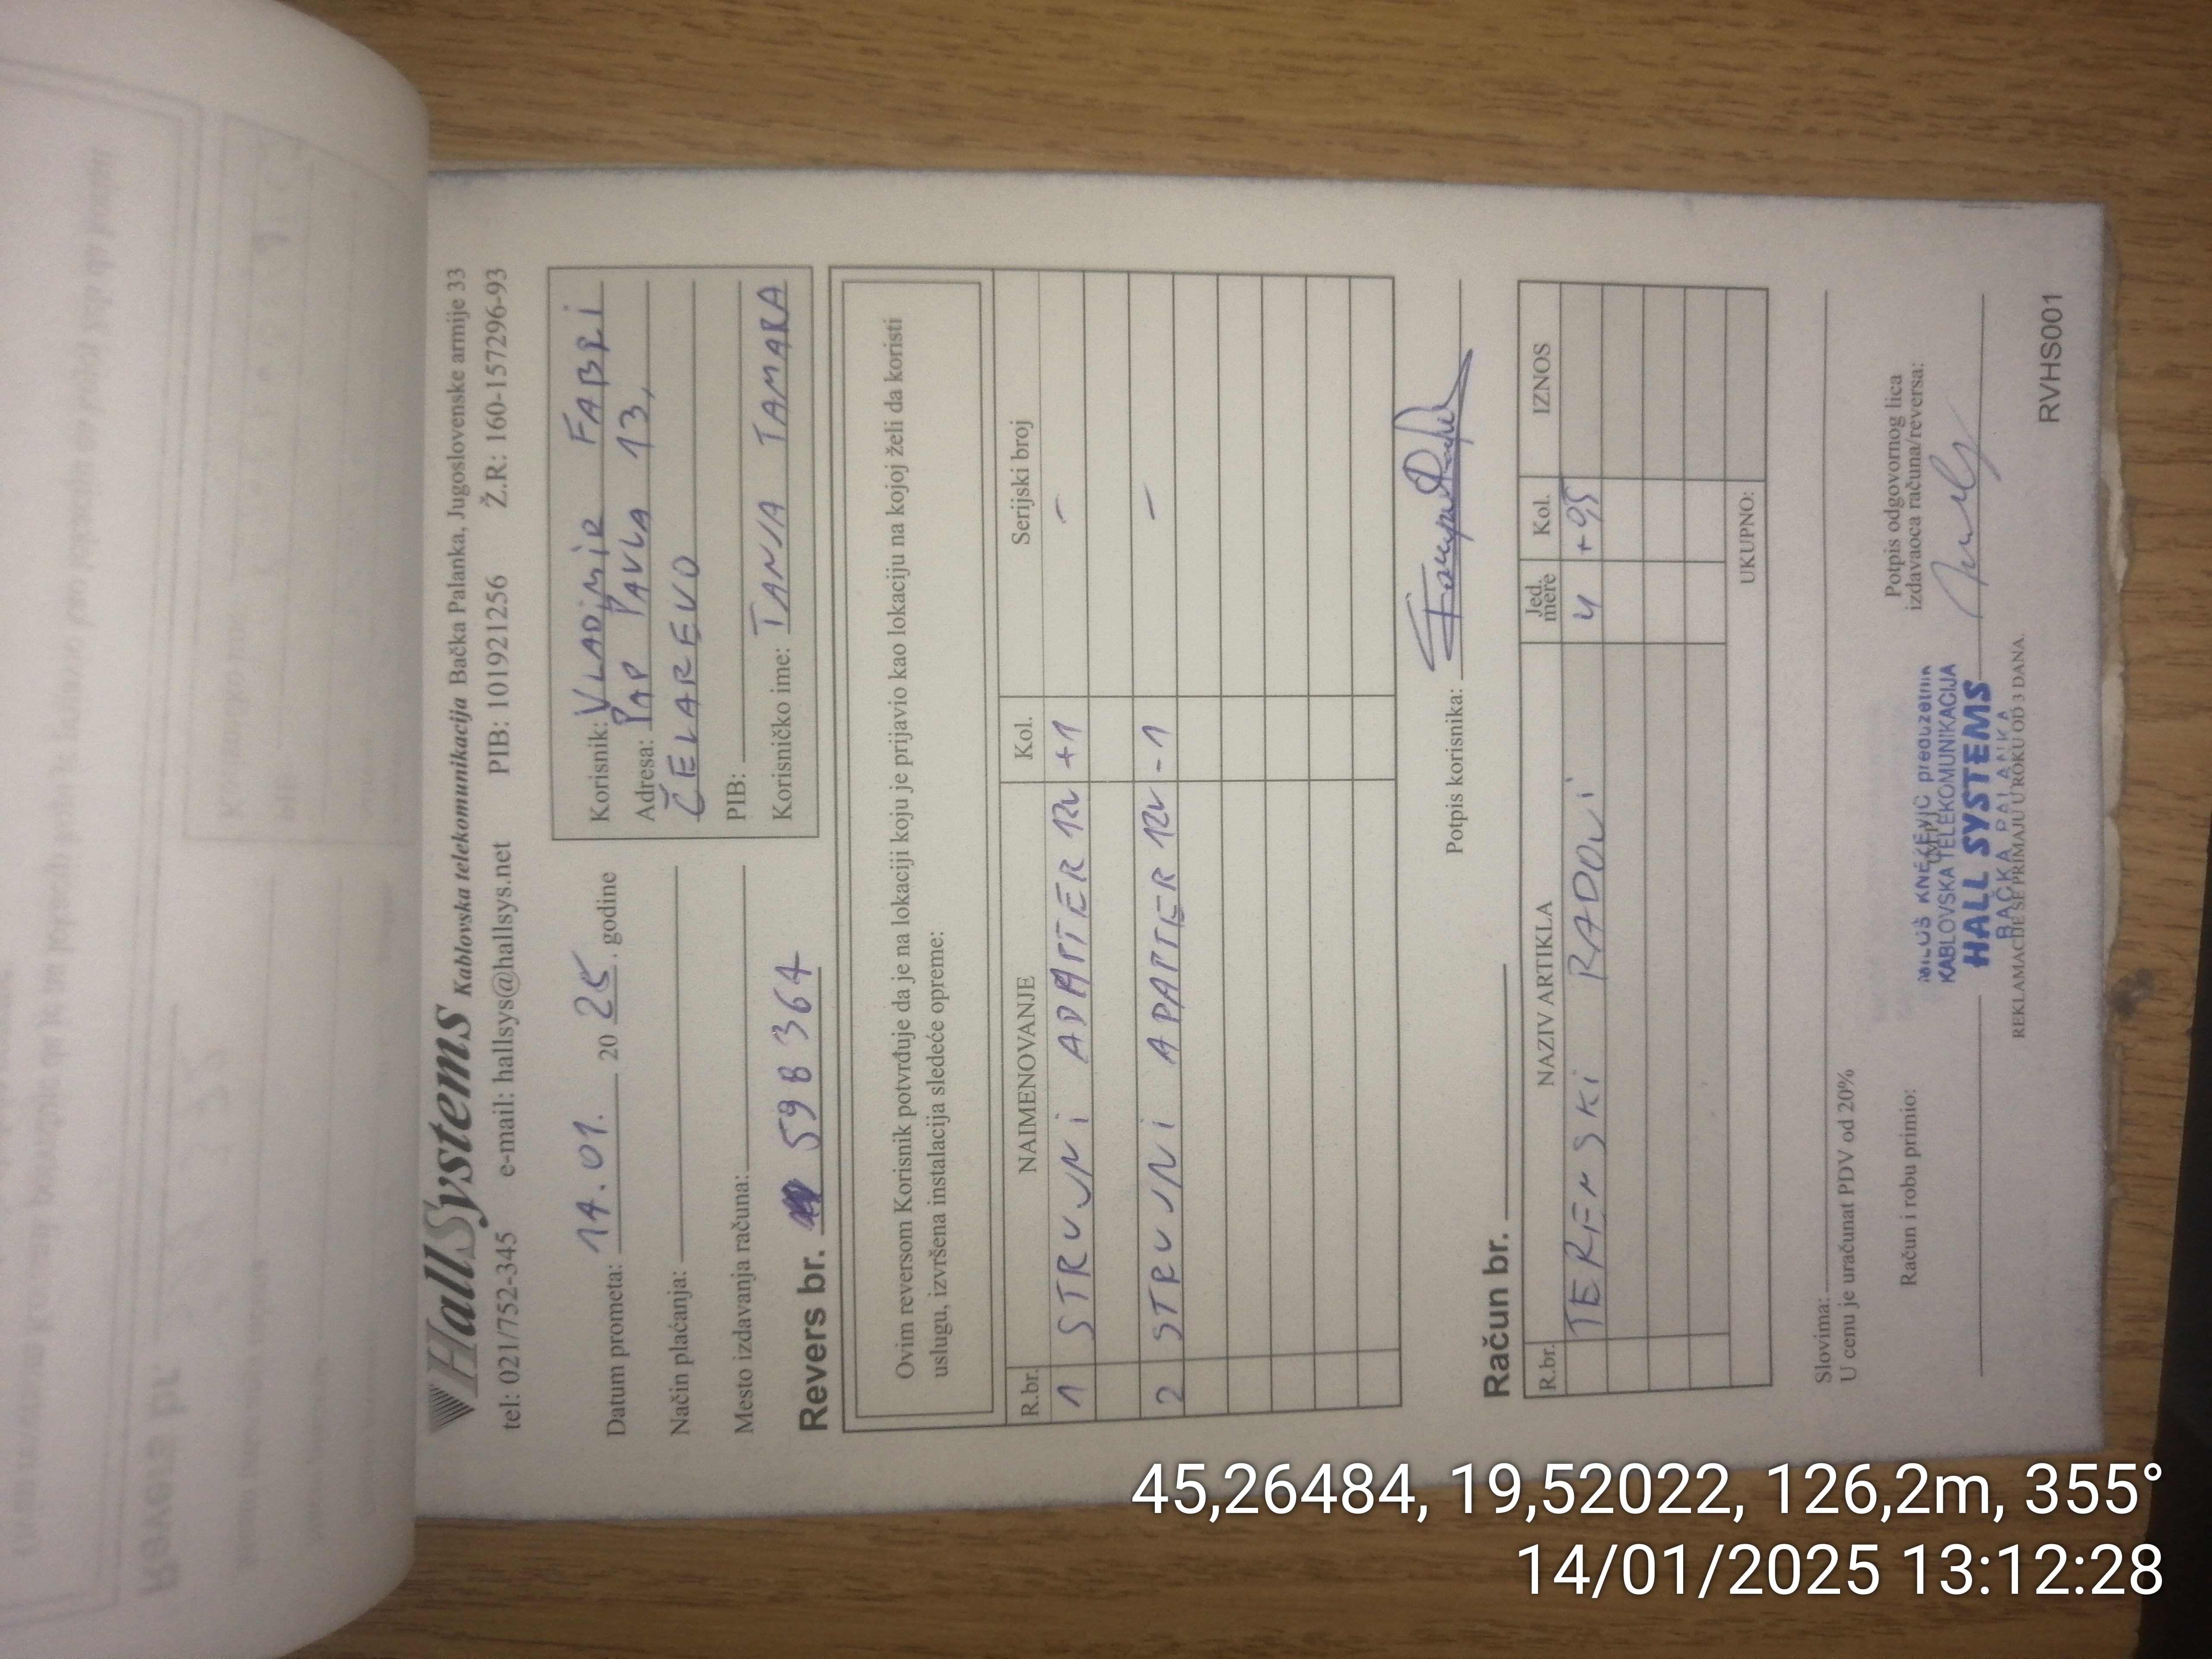 HallSystems Kablovska telekomunikacija Bačka Palanka, Jugoslovenske armije 33
tel: 021/752-345 e-mail: hallsys@hallsys.net PIB: 101921256 Ž.R: 160-157296-93
Datum prometa: 14.01. 2025. godine
Način plaćanja:
Mesto izdavanja računa:
Korisnik: VLADIMIR FABRI
Adresa: PAP PAVLA 13,
ČELAREVO
PIB:
Korisničko ime: TANJA TAMARA
Revers br. 59B364
Ovim reversom Korisnik potvrđuje da je na lokaciji koju je prijavio kao lokaciju na kojoj želi da koristi
uslugu, izvršena instalacija sledeće opreme:
R.br. NAIMENOVANJE Kol. Serijski broj
1 STRUJNI ADAPTER 12V +1 -
2 STRUJNI APAPTER 12V -1 -
Potpis korisnika:
Račun br.
R.br. NAZIV ARTIKLA Jed. mere Kol. IZNOS
TERENSKI RADOVI 4 +95
UKUPNO:
Slovima:
U cenu je uračunat PDV od 20%
Račun i robu primio:
MP
Potpis odgovornog lica
izdavaoca računa/reversa:
MILOŠ KNEŽEVIĆ preduzetnik
KABLOVSKA TELEKOMUNIKACIJA
HALL SYSTEMS
BAČKA PALANKA
REKLAMACIJE SE PRIMAJU U ROKU OD 3 DANA.
RVHS001
45,26484, 19,52022, 126,2m, 355°
14/01/2025 13:12:28